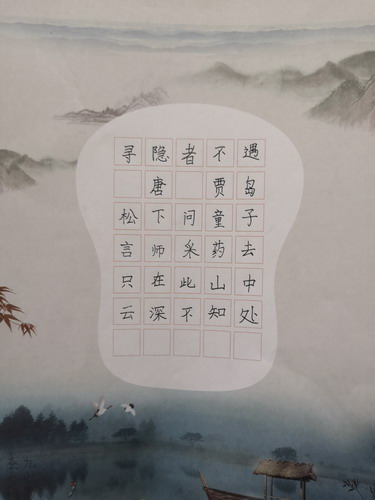 寻隐者不遇
唐 贾岛
松下问童子
言师采药去
只在此山中
云深不知处